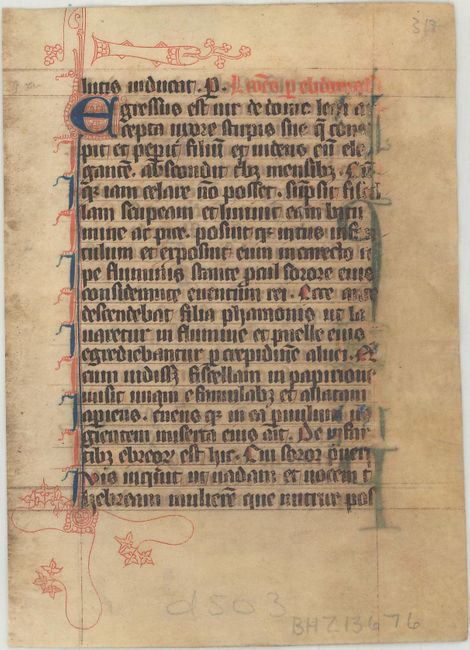 319
lucis inducat. P.
Egressus est uir de domo leui ac
cepta uxore stirpis sue q̄ conce
pit et peperit filiū et uidens eū ele
gantē. abscondit tbz mensibz. Cū
qz iam celare nō posset. sūpsit fiscel
lam scirpeam et liniuit eam bitu
mine ac pice. posuit qz intus infan
culum et exposuit eum in carecto ri
pe fluminis stante pcul sorore eius
considerante euentum rei. Ecce aute
descendebat filia pharaonis ut la
uaretur in flumine et puelle eius
egrediebantur p crepidinē aluei. 
cum uidissz fiscellam in papirione
misit unam e famulabz et allatam
aperiens. cernens qz in ea paruulum ua
gientem miserta eius ait. De infan
tibz ebreorz est hic. Cui soror pueri
Vis inquit ut uadam et uocem t
hebream mulierē que nutrire pos
d503
BHZ13676